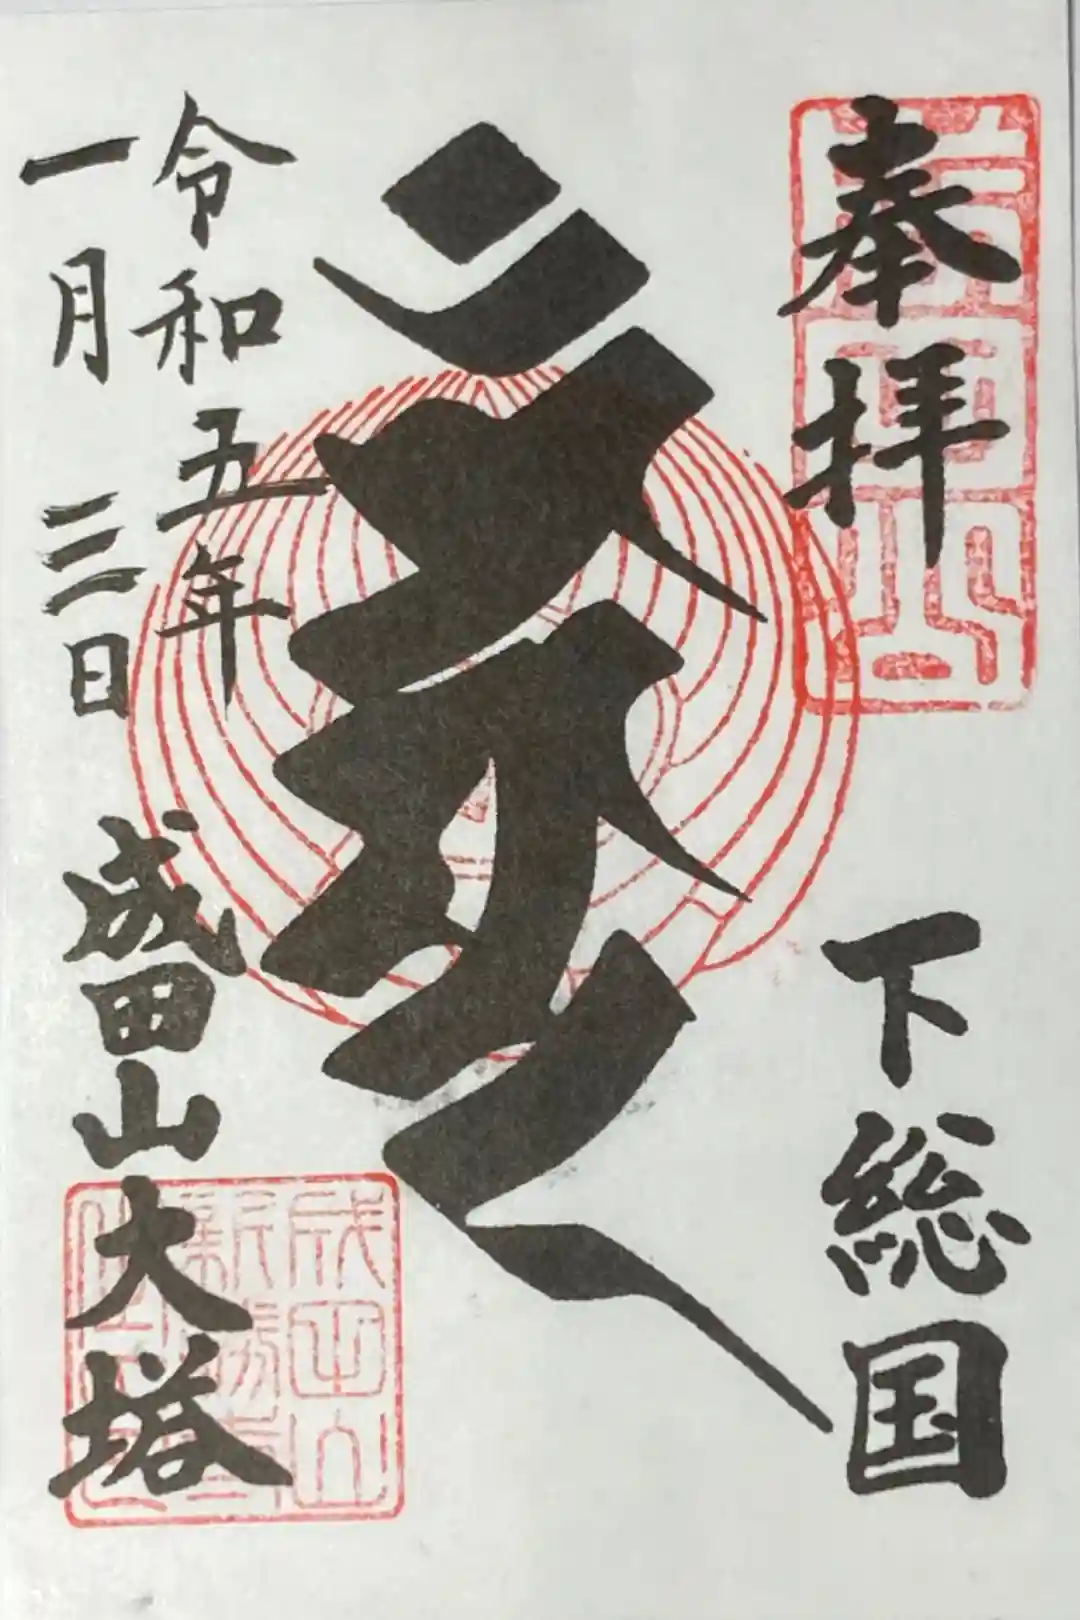 奉拝
下総国
令和五年
一月三日
成田山大塔
成田山
新勝寺